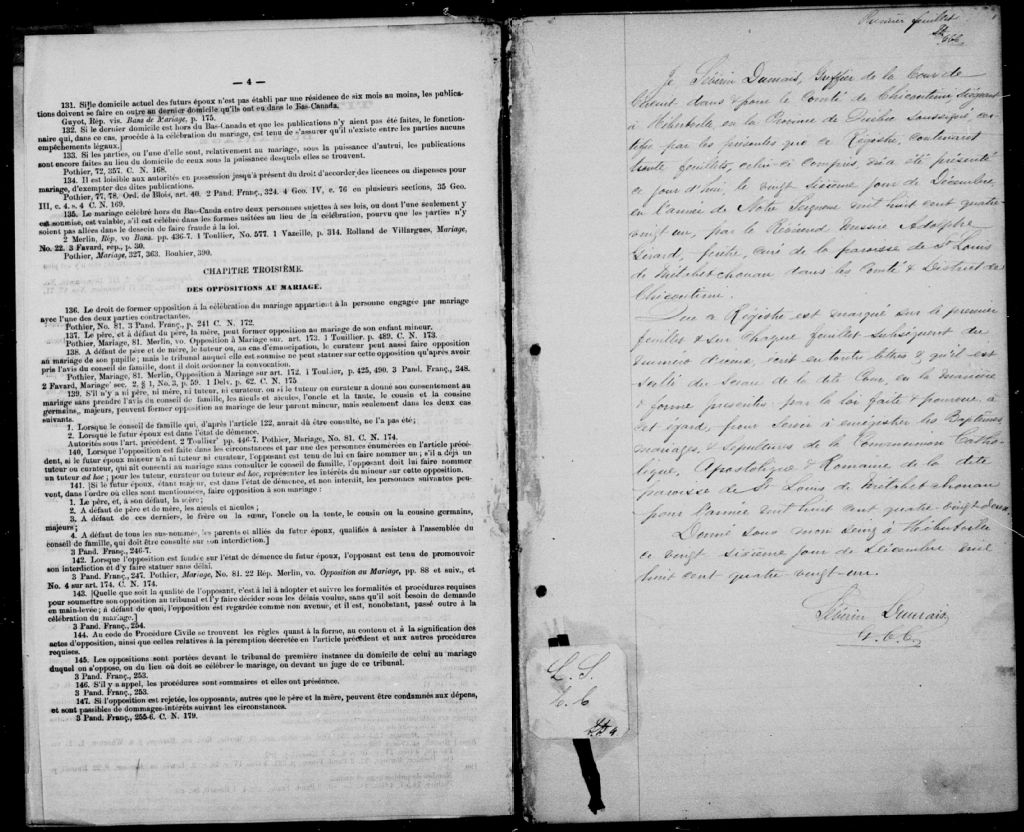 — 4 —
131. Si le domicile actuel des futurs époux n'est pas établi par une résidence de six mois au moins, les publica-
tions doivent se faire en outre au dernier domicile qu'ils ont eu dans le Bas-Canada.
Guyot, Rép. vis. Bans de Mariage, p. 175.
132. Si le dernier domicile est hors du Bas-Canada et que les publications n'y aient pas été faites, le fonction-
naire qui, dans ce cas, procède à la célébration du mariage, est tenu de s'assurer qu'il n'existe entre les parties aucuns
empêchements légaux.]
133. Si les parties, ou l'une d'elle sont, relativement au mariage, sous la puissance d'autrui, les publications
sont encore faites au lieu du domicile de ceux sous la puissance desquels elles se trouvent.
Pothier, 72, 357. C. N. 168.
134. Il est loisible aux autorités en possession jusqu'à présent du droit d'accorder des licences ou dispenses pour
mariage, d'exempter des dites publications.
Pothier, 77, 78. Ord. de Blois, art. 40. 2 Pand. Franç., 324. 4 Geo. IV, c. 76 en plusieurs sections, 35 Geo.
III, c. 4. s. 4 C. N. 169.
135. Le mariage célébré hors du Bas-Canda entre deux personnes sujettes à ses lois, ou dont l'une seulement y
est soumise, est valable, s'il est célébré dans les formes usitées au lieu de la célébration, pourvu que les parties n'y
soient pas allées dans le dessein de faire fraude à la loi.
2 Merlin, Rép. vo Bans. pp. 436-7. 1 Toullier, No. 577. 1 Vazeille, p. 314. Rolland de Villargues, Mariage,
No. 22. 3 Favard, rép., p. 30.
Pothier, Mariage, 327, 363. Bouhier, 390.
CHAPITRE TROISIÈME.
DES OPPOSITIONS AU MARIAGE.
136. Le droit de former opposition à la célébration du mariage appartient à la personne engagée par mariage
avec l'une des deux parties contractantes.
Pothier, No. 81, 3 Pand. Franç., p. 241 C. N. 172.
137. Le père, et à défaut du père, la mère, peut former opposition au mariage de son enfant mineur.
Pothier, Mariage, 81. Merlin, vo. Opposition à Mariage sur. art. 173. 1 Touillier. p. 489. C. N. 173.
138. A défaut de père et de mère, le tuteur ou, au cas d'émancipation, le curateur peut aussi faire opposition
au mariage de son pupille; mais le tribunal auquel elle est soumise ne peut statuer sur cette opposition qu'après avoir
pris l'avis du conseil de famille, dont il doit ordonner la convocation.
Pothier, Mariage, 81. Merlin, Opposition à Mariage sur art. 172. 1 Toulier, p. 425, 490. 3 Pand. Franç., 248.
2 Favard, Mariage' sec. 2, § 1, No. 3, p. 59. 1 Delv. p. 62. C. N. 175
139. S'il n'y a ni père, ni mère, ni tuteur, ni curateur, ou si le tuteur ou curateur a donné son consentement au
mariage sans prendre l'avis du conseil de famille, les aïeuls et aïeules, l'oncle et la tante, le cousin et la cousine
germains, majeurs, peuvent former opposition au mariage de leur parent mineur, mais seulement dans les deux cas
suivants.
1. Lorsque le conseil de famille qui, d'après l'article 122, aurait dû être consulté, ne l'a pas été;
2. Lorsque le futur époux est dans l'état de démence.
Autorités sous l'art. précédent. 2 Toullier' pp. 446-7. Pothier, Mariage, No. 81. C. N. 174.
140. Lorsque l'opposition est faite dans les circonstances et par une des personnes énumérées en l'article précé-
dent, si le futur époux mineur n'a ni tuteur ni curateur, l'opposant est tenu de lui en faire nommer un; s'il a déjà un
tuteur ou curateur, qui ait consenti au mariage sans consulter le conseil de famille, l'opposant doit lui faire nommer
un tuteur ad hoc; pour les tuteur, curateur ou tuteur ad hoc, représenter les intérêts du mineur sur cette opposition.
141. [Si le futur époux, étant majeur, est dans l'état de démence, et non interdit, les personnes suivantes peu-
vent, dans l'ordre où elles sont mentionnées, faire opposition à son mariage:
1. Le père, et, à son défaut, la mère;
2. A défaut de père et de mère, les aïeuls et aïeules;
3. A défaut de ces derniers, le frère ou la sœur, l'oncle ou la tante, le cousin ou la cousine germains,
majeurs;
4. A défaut de tous les sus-nommés, les parents et alliés du futur époux, qualifiés à assister à l'assemblée du
conseil de famille, qui doit être consulté sur son interdiction.]
3 Pand. Franç., 246-7.
142. Lorsque l'opposition est fondée sur l'état de démence du futur époux, l'opposant est tenu de promouvoir
son interdiction et d'y faire statuer sans délai.
3 Pand. Franç., 247. Pothier, Mariage, No. 81. 22 Rép. Merlin, vo. Opposition au Mariage, pp. 88 et suiv., et
No. 4 sur art. 174. C. N. 174.
143. [Quelle que soit la qualité de l'opposant, c'est à lui à adopter et suivre les formalités et procédures requises
pour soumettre son opposition au tribunal et l'y faire décider sous les délais voulus, sans qu'il soit besoin de demande
en main-levée; à défaut de quoi, l'opposition est regardée comme non avenue, et il est, nonobstant, passé outre à la
célébration du mariage.]
3 Pand. Franç., 254.
144. Au code de Procédure Civile se trouvent les règles quant à la forme, au contenu et à la signification des
actes d'opposition, ainsi que celles relatives à la péremption décrétée en l'article précédent et aux autres procédures
requises.
145. Les oppositions sont portées devant le tribunal de première instance du domicile de celui au mariage
duquel on s'oppose, ou du lieu où doit se célébrer le mariage, ou devant un juge de ce tribunal.
3 Pand. Franç., 253.
146. S'il y a appel, les procédures sont sommaires et elles ont préséance.
3 Pand. Franç., 253.
147. Si l'opposition est rejetée, les opposants, autres que le père et la mère, peuvent être condamnés aux dépens,
et sont passibles de dommages-intérêts suivant les circonstances.
3 Pand. Franç., 255-6. C. N. 179.
Premier feuillet
Je Sévérin Dumais, Greffier de la Cour de
Circuit dans & pour le Comté de Chicoutimi Siégeant
à Hébertville en la Province de Québec Soussigné, cer-
tifie par les présentes que ce Régistre contenant
trente feuillets, celui-ci compris, m'a été présenté
ce jour d'hui, le vingt Sixième jour de Décembre,
en l'année de Notre Seigneur mil huit cent quatre-
vingt un, par le Révérend Messire Adolphe
Girard, prêtre, curé de la paroisse de St Louis
de Métabetchouan dans les Comté & District de
Chicoutimi.
Que ce Régistre est marqué sur le premier
feuillet & sur chaque feuillet subséquent du
numéro d'iceux, écrit en toutes lettres & qu'il est
scellé du Sceau de la dite Cour, en la manière
& forme prescrites par la loi faite & pourvue, à
cet égard, pour servir à enrégistrer les Baptêmes
mariages, & Sépultures de la Communion Catho-
lique, Apostolique Romaine de la dite
paroisse de St Louis de Métabetchouan
pour l'année mil huit cent quatre-vingt-deux.
Donné sous mon seing à Hébertville
ce vingt Sixième jour de Décembre mil
huit cent quatre vingt-un.
Sévérin Dumais
L. S.